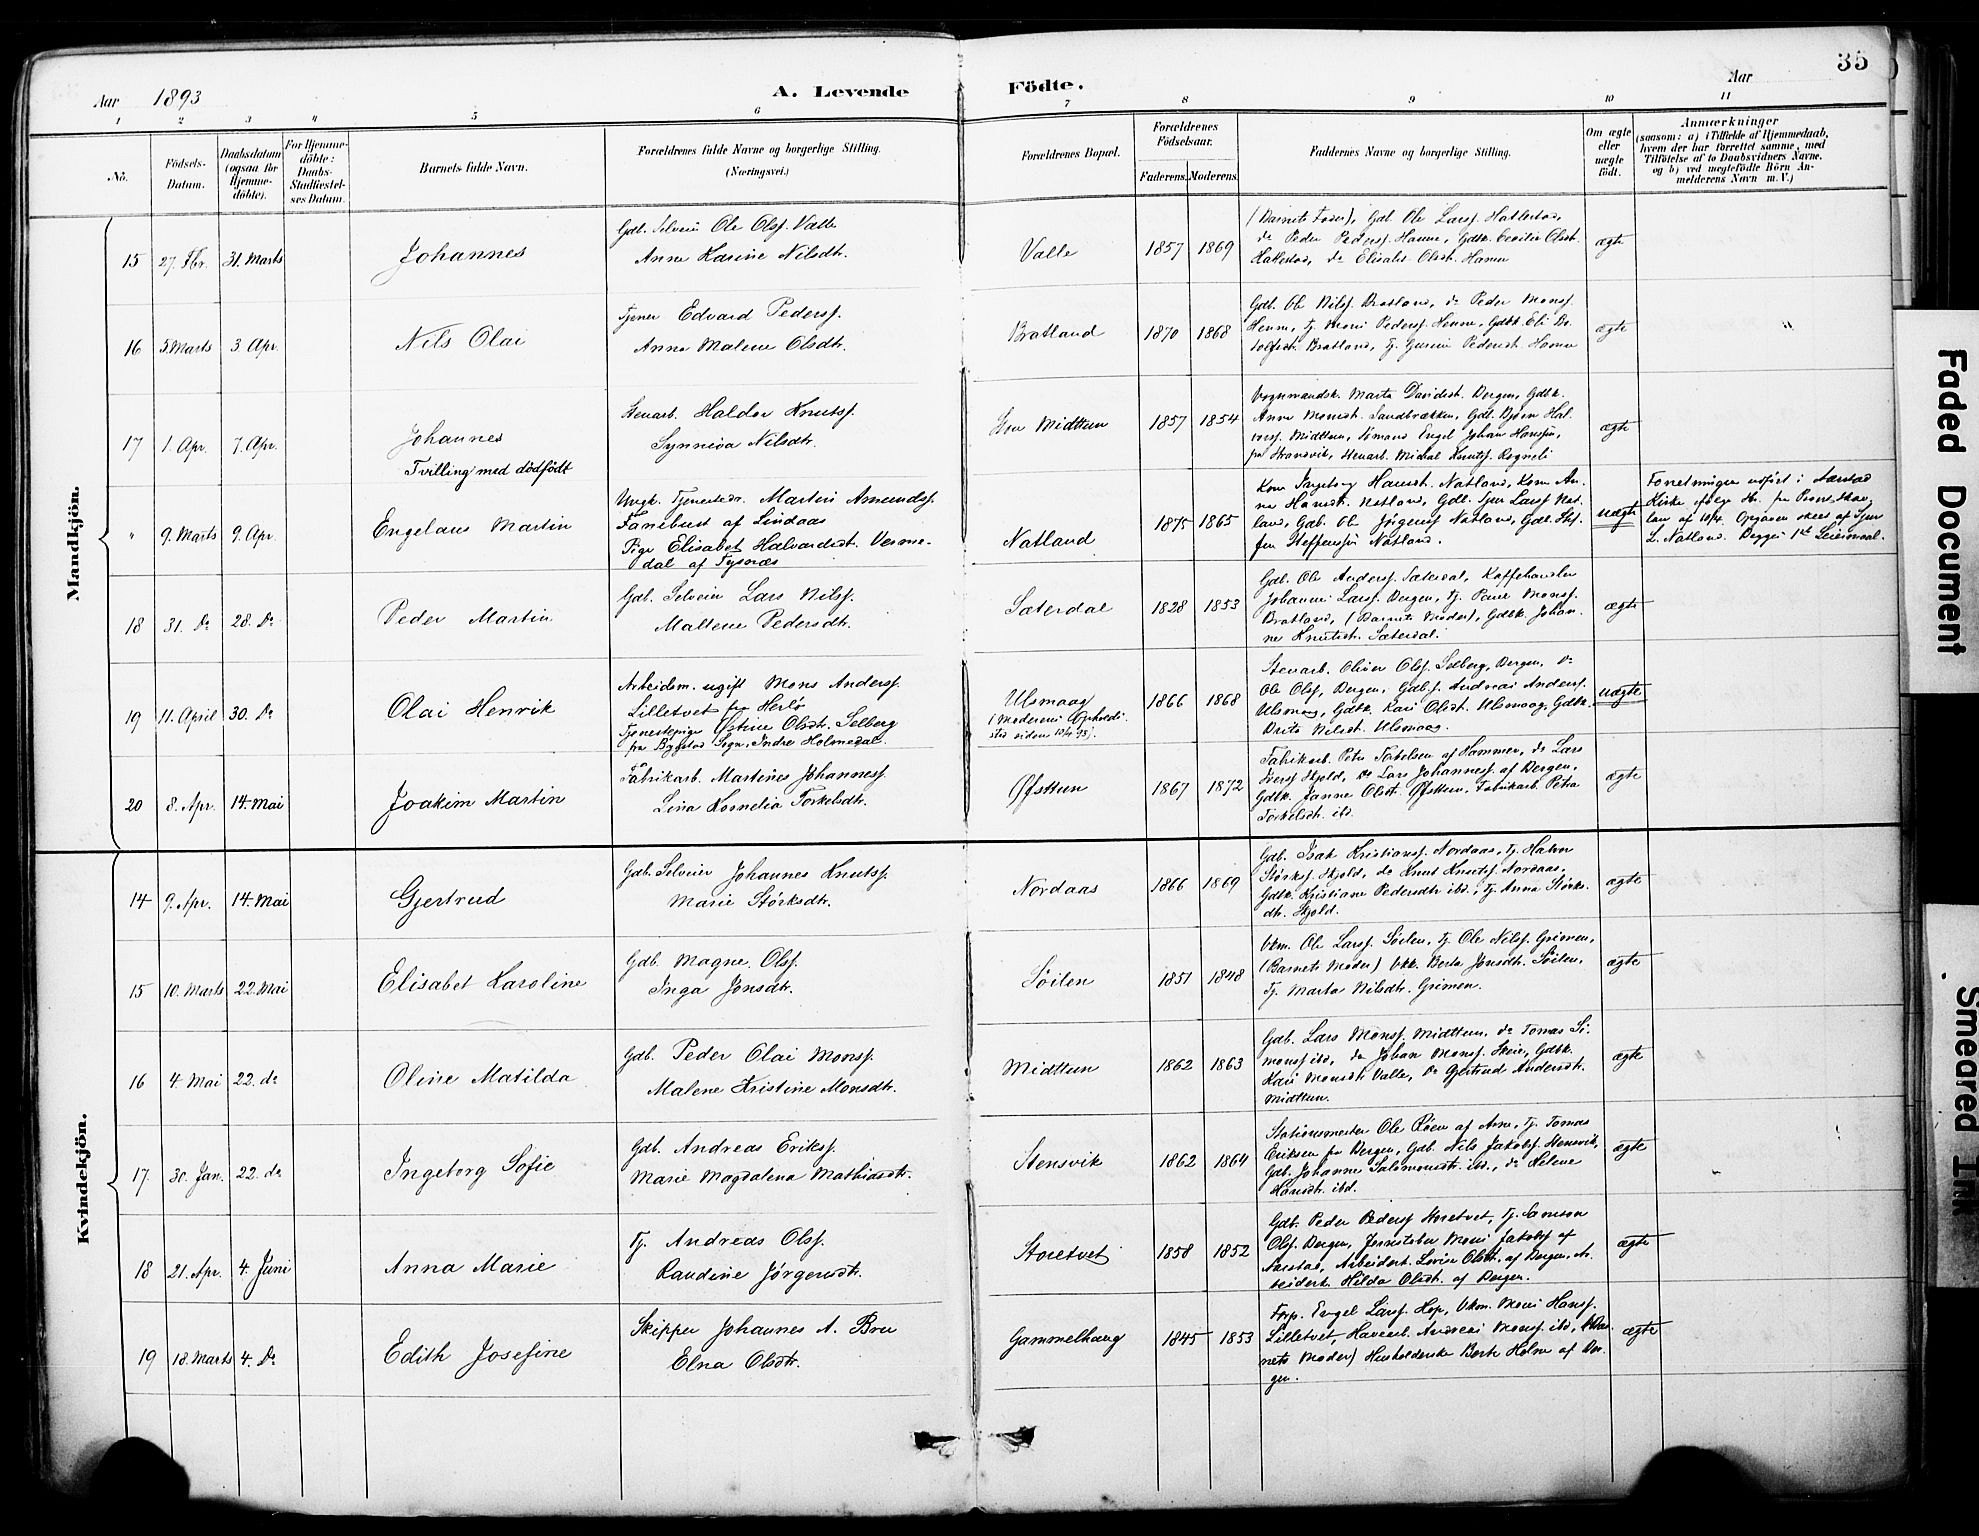 35
Aar 1893 A. Levende Födte. Aar
1 2 3 4 5 6 7 8 9 10 11
No.
Födsels-Datum.
Daabsdatum (ogsaa for Hjemme-döbte).
For Hjemme-döbte: Daabs-Stadfæstel-ses Datum.
Barnets fulde Navn.
Forældrenes fulde Navne og borgerlige Stilling. (Næringsvei.)
Forældrenes Bopæl.
Forældrenes Födselsaar.
Faderens. Moderens.
Faddernes Navne og borgerlige Stilling.
Om ægte eller uægte födt.
Anmærkninger
(saasom: a) i Tilfælde af Hjemmedaab,
hvem der har forrettet samme, med
Tilföielse af to Daabsvidners Navne,
og b) ved uægtefödte Börn An-
melderens Navn m. V.)
Mandkjön.
15 27. Fbr. 31. Marts Johannes
Gdb. Selveier Ole Olsf. Valle
Anna Karine Nilsdtr.
Valle 1857 1869
(Barnets Fader), Gdb. Ole Larsf. Hatlestad,
do Peder Pedersf. Hamre, Gdbk. Cecilie Olsdt.
Hatlestad, do Elisabet Olsdt. Hamre
ægte
16 5. Marts 3. Apr. Nils Olai
Tjener Edvard Pedersf.
Anna Malene Olsdtr.
Bratland 1870 1868
Gdb. Ole Nilsf. Bratland, do Peder Monsf.
ægte
17 1. Apr. 7. Apr. Johannes
Tvilling med dödfödt
Stenarb. Haldor Knutsf.
Synneva Nilsdtr.
Midttun 1857 1854
Vognmandsk. Marta Davidsdt. Bergen, Gdbk.
Anna Monsdt. Sandbrækken, Gdb. Bjørn Hal-
vorsf. Midttun, Sömand Engel Johan Hansen,
ægte
" 9. Marts 9. Apr. Engelaus Martin
Ungk. Tjenestedr. Martin Amundsf.
Fanebust af Lindaas
Pige Elisabet Halvardsdt. Vesme-
dal af Tysnæs
Natland 1875 1865
Kone Ingeborg Hansdt. Natland, Kone An-
na Hansdt. Natland, Gdb. Sjur Larsf. Nat-
land, Gdb. Ole Jørgensf. Natland, Gdb. Stef-
fen Steffensen Natland.
uægte
Forretningen udført i Aarstad
Kirke
L. Natland. Begges 1ste Leiermaal.
18 31. Do 28. Do Peder Martin
Gdb. Selveier Lars Nilsf.
Maltene Pedersdtr.
Sæterdal 1828 1853
Gdb. Ole Andersf. Sæterdal, Kaffehandler
Johannes Larsf. Bergen, Tj. Monsf.
Bratland, (Barnets Moder), Gdbk. Johan-
ne Knutsdt. Sæterdal.
ægte
19 11. April 30. Do Olai Henrik
Arbeidsm. ugift Mons Andersf.
Lilletvet fra Herlö
Tjenestepige Østine Olsdt. Selberg
fra Bygstad Sogn, Indre Holmedal.
Ulsmaag
(Moderens Opholds-
sted siden 10/4 93).
1866 1868
Stenarb. Oliver Olsf. Selberg, Bergen, do
Ole Olsf. Bergen, Gdb.s. Andreas Andersf.
Ulsmaag, Gdbk. Kari Olsdt. Ulsmaag, Gdbk.
Brita Nilsdt. Ulsmaag.
uægte
20 8. Apr. 14. Mai Joakim Martin
Fabrikarb. Martines Johannesf.
Lina Kornelia Torkelsdtr.
Øfsttun 1867 1872
Fabrikarb. Peter Torkelsen af Hammer, do Lars
Iversf. Skjold, do Lars Johannesf. af Bergen,
Gdbk. Janna Olsdt. Øfsttun, Fabrikarb. Petra
Torkelsdt. ibd.
ægte
Kvindekjön.
14 9. Apr. 14. Mai Gjertrud
Gdb. Selveier Johannes Knutsf.
Marie Störksdtr.
Nordaas 1866 1869
Gdb. Isak Kristiansf. Nordaas, Tj. Halvor
Störksf. Skjold, do Knut Knutsf. Nordaas,
Gdbk. Kristiane Pedersdtr ibd., Tj. Anna Störks-
dtr. Skjold.
ægte
15 10. Marts 22. Mai Elisabet Karoline
Gdb. Magne Olsf.
Inga Jonsdtr.
Söilen 1851 1848
Vkm. Ole Larsf. Söilen, Tj. Ole Nilsf. Grimen,
(Barnets Moder) Vkk. Berta Jonsdtr. Söilen,
Tj. Marta Nilsdtr. Grimen.
ægte
16 4. Mai 22. do Oline Matilda
Gdb. Peder Olai Monsf.
Malene Kristine Monsdtr.
Midttun 1862 1863
Gdb. Lars Monsf. Midttun, do Tomas Si-
monsf. ibd., do Johan Monsf. Skeie, Gdbk.
Kari Monsdtr Valle, do Gjertrud Andersdtr.
Midttun.
ægte
17 30. Jan. 22. do Ingeborg Sofie
Gdb. Andreas Eriksf.
Marie Magdalena Mathiasdtr.
Stensvik 1862 1864
Stationsmester Ole Röen af Arne, Tj. Tomas
Eriksen fra Bergen, Gdb. Nils Jakobsf. Stensvik,
Gdb. Johanne Salomonsdt. ibd., do Helene
Hansdtr. ibd.
ægte
18 21. Apr. 4. Juni Anna Marie
Tj. Andreas Olsf.
Raudine Jørgensdtr.
Storetvet 1858 1852
Gdb. Peder Pedersf. Storetvet, Tj. Samson
Olsf. Bergen, Mons Jakobsf. af
Aarstad, Arbeidert. Lovise Olsdt. af Bergen, Ar-
beidert. Hilda Olsdt. af Bergen.
ægte
19 18. Marts 4. Do Edith Josefine
Skipper Johannes A. Bru
Elna Olsdtr.
Gammelhaug 1845 1853
Forp. Engel Larsf. Hop, Vkm. Mons Hansf.
Lilletvet, Havearb. Andreas Monsf. ibd., (Bar-
nets Moder) Husholderske Berte Holm af Ber-
gen.
ægte
Faded Document
Smeared Ink